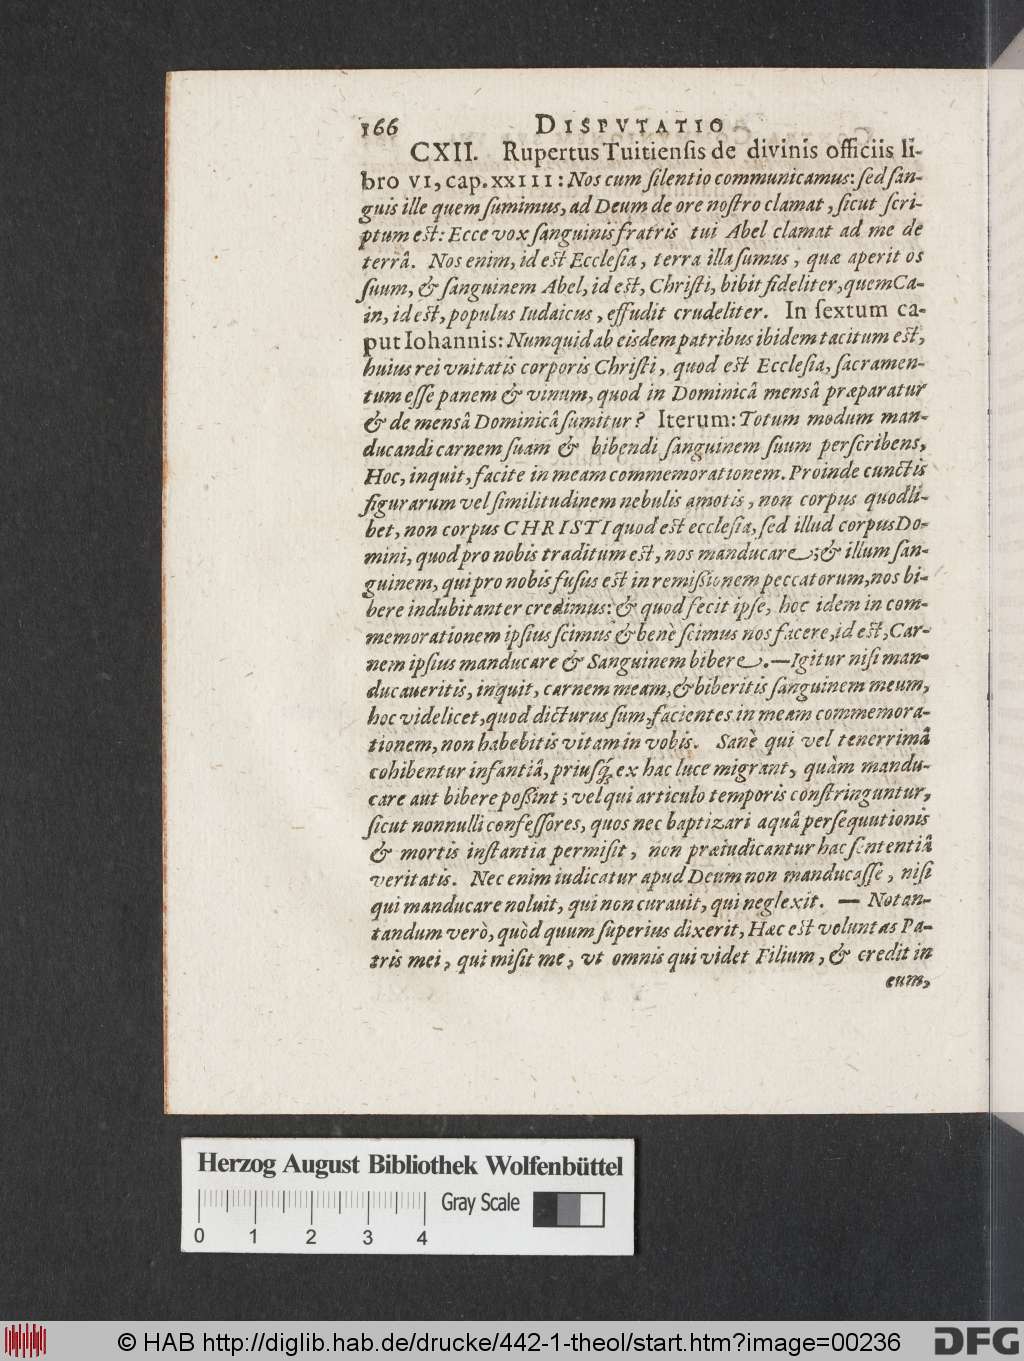 166 DISPVTATIO
CXII. Rupertus Tuitiensis de divinis officiis li-
bro VI, cap. XXIII: Nos cum silentio communicamus: sed san-
guis ille quem sumimus, ad Deum de ore nostro clamat, sicut scri-
ptum est: Ecce vox sanguinis fratris tui Abel clamat ad me de
terrâ. Nos enim, id est Ecclesia, terra illa sumus, quæ aperit os
suum, & sanguinem Abel, id est, Christi, bibit fideliter, quem Ca-
in, id est, populus Iudaicus, effudit crudeliter. In sextum ca-
put Iohannis: Numquid ab eisdem patribus ibidem tacitum est,
huius rei vnitatis corporis Christi, quod est Ecclesia, sacramen-
tum esse panem & vinum, quod in Dominicâ mensâ præparatur
& de mensâ Dominicâ sumitur? Iterum: Totum modum man-
ducandi carnem suam & bibendi sanguinem suum perscribens,
Hoc, inquit, facite in meam commemorationem. Proinde cunctis
figurarum vel similitudinem nebulis amotis, non corpus quodli-
bet, non corpus CHRISTI quod est ecclesia, sed illud corpus Do-
mini, quod pro nobis traditum est, nos manducare; & illum san-
guinem, qui pro nobis fusus est in remissionem peccatorum, nos bi-
bere indubitanter credimus: & quod fecit ipse, hoc idem in com-
memorationem ipsius scimus & benè scimus nos facere, id est, Car-
nem ipsius manducare & Sanguinem bibere. — Igitur nisi man-
ducaueritis, inquit, carnem meam, & biberitis sanguinem meum,
hoc videlicet, quod dicturus sum, facientes in meam commemora-
tionem, non habebitis vitam in vobis. Sanè qui vel tenerrimâ
cohibentur infantiâ, priusq́; ex hac luce migrant, quàm mandu-
care aut bibere possint; vel qui articulo temporis constringuntur,
sicut nonnulli confessores, quos nec baptizari aquâ persequutionis
& mortis instantia permisit, non præiudicantur hac sententiâ
veritatis. Nec enim iudicatur apud Deum non manducasse, nisi
qui manducare noluit, qui non curauit, qui neglexit. — Notan-
tandum verò, quòd quum superius dixerit, Hæc est voluntas Pa-
tris mei, qui misit me, vt omnis qui videt Filium, & credit in
eum,
Herzog August Bibliothek Wolfenbüttel
Gray Scale
0 1 2 3 4
© HAB http://diglib.hab.de/drucke/442-1-theol/start.htm?image=00236
DFG